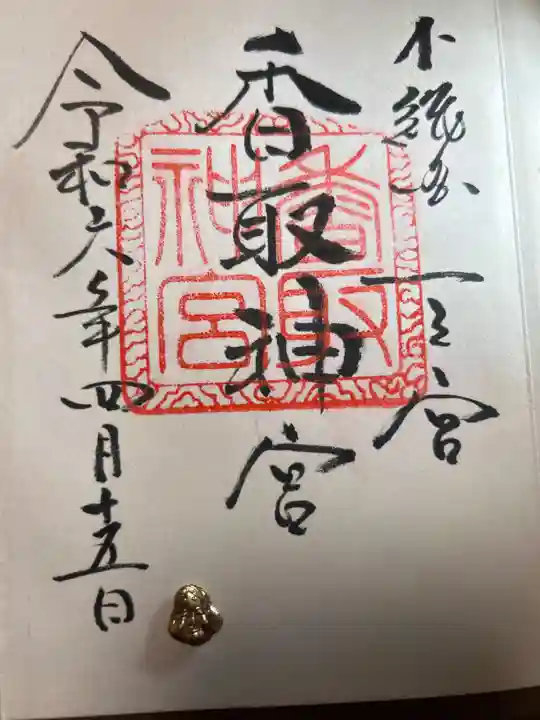 下総国一之宮
香取神宮
令和六年四月十五日
香取
神宮